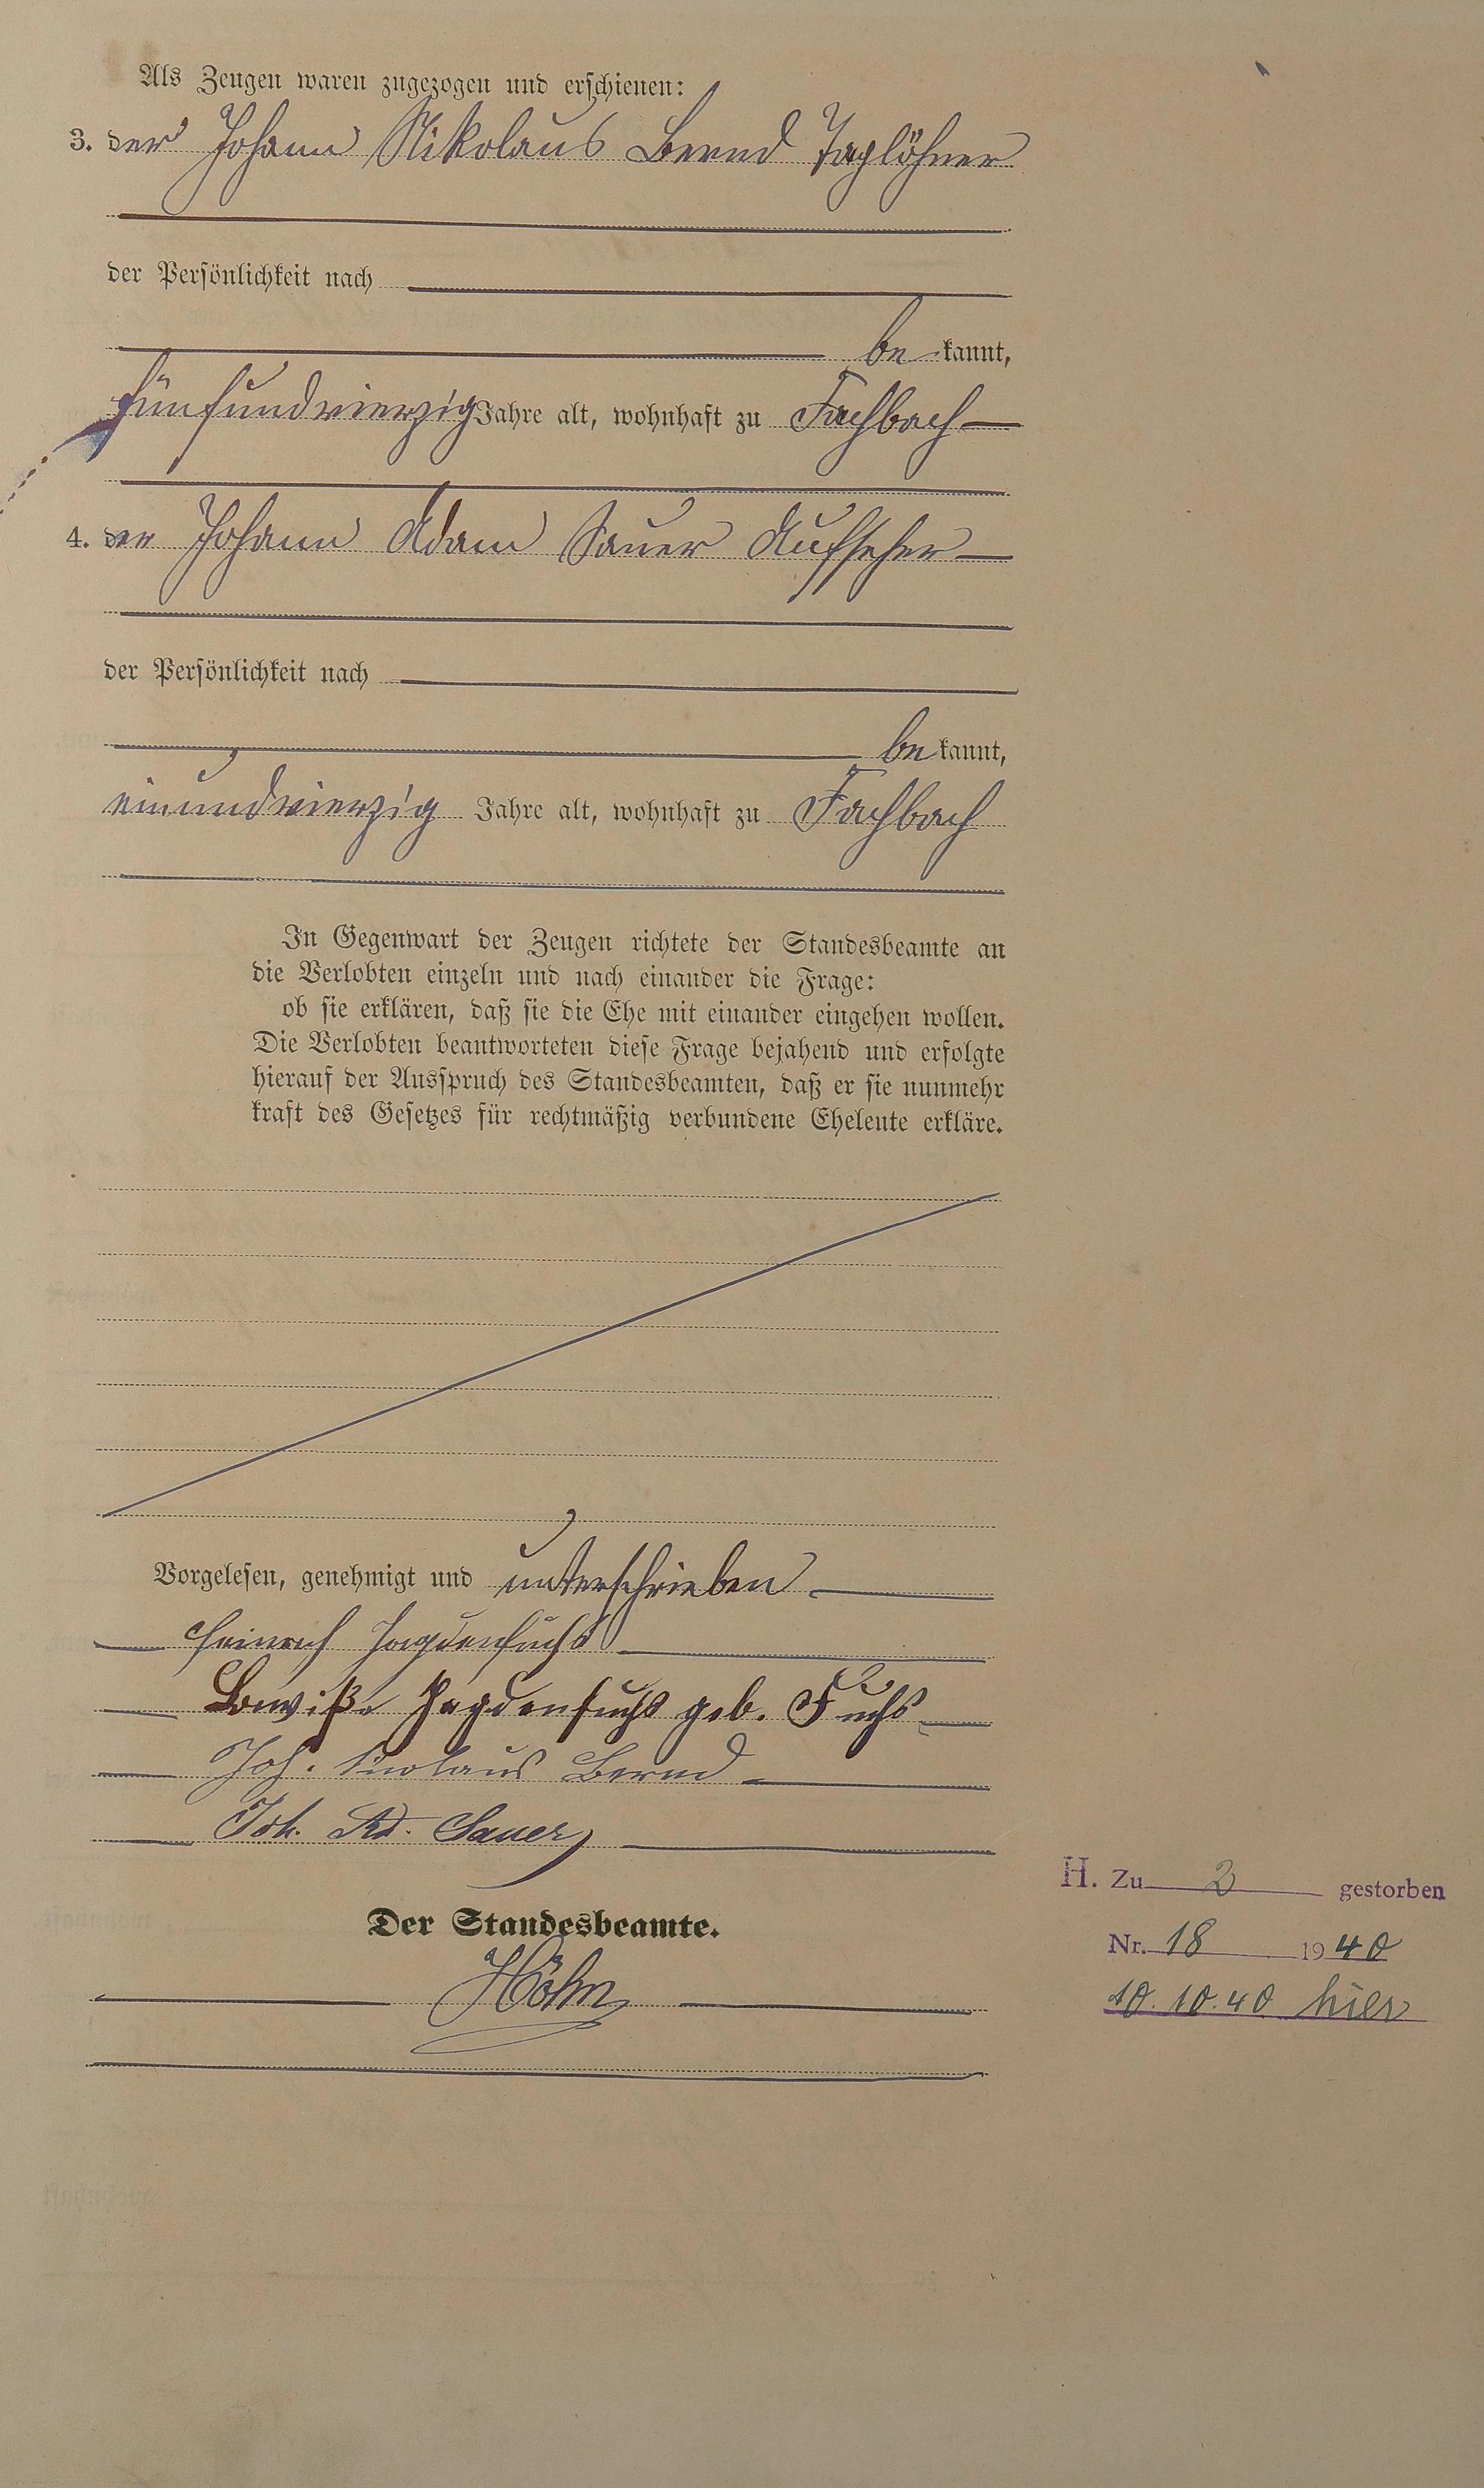 Als Zeugen waren zugezogen und erschienen:
3. der Johann Nikolaus Bernd Taglöhner
der Persönlichkeit nach
be kannt,
fünfundvierzig Jahre alt, wohnhaft zu Fachbach
4. der Johann Adam Sauer Aufseher
der Persönlichkeit nach
be kannt,
einundvierzig Jahre alt, wohnhaft zu Fachbach
In Gegenwart der Zeugen richtete der Standesbeamte an
die Verlobten einzeln und nach einander die Frage:
ob sie erklären, daß sie die Ehe mit einander eingehen wollen.
Die Verlobten beantworteten diese Frage bejahend und erfolgte
hierauf der Ausspruch des Standesbeamten, daß er sie nunmehr
kraft des Gesetzes für rechtmäßig verbundene Eheleute erkläre.
Vorgelesen, genehmigt und unterschrieben
Heinrich Hagdenfuchs
Lowiße Hagdenfuchs geb. Fuchs
Joh. Nicolaus Bernd
Joh. Ad. Sauer
Der Standesbeamte.
Höhn
H. Zu 2 gestorben
Nr. 18 1940
10.10.40 hier